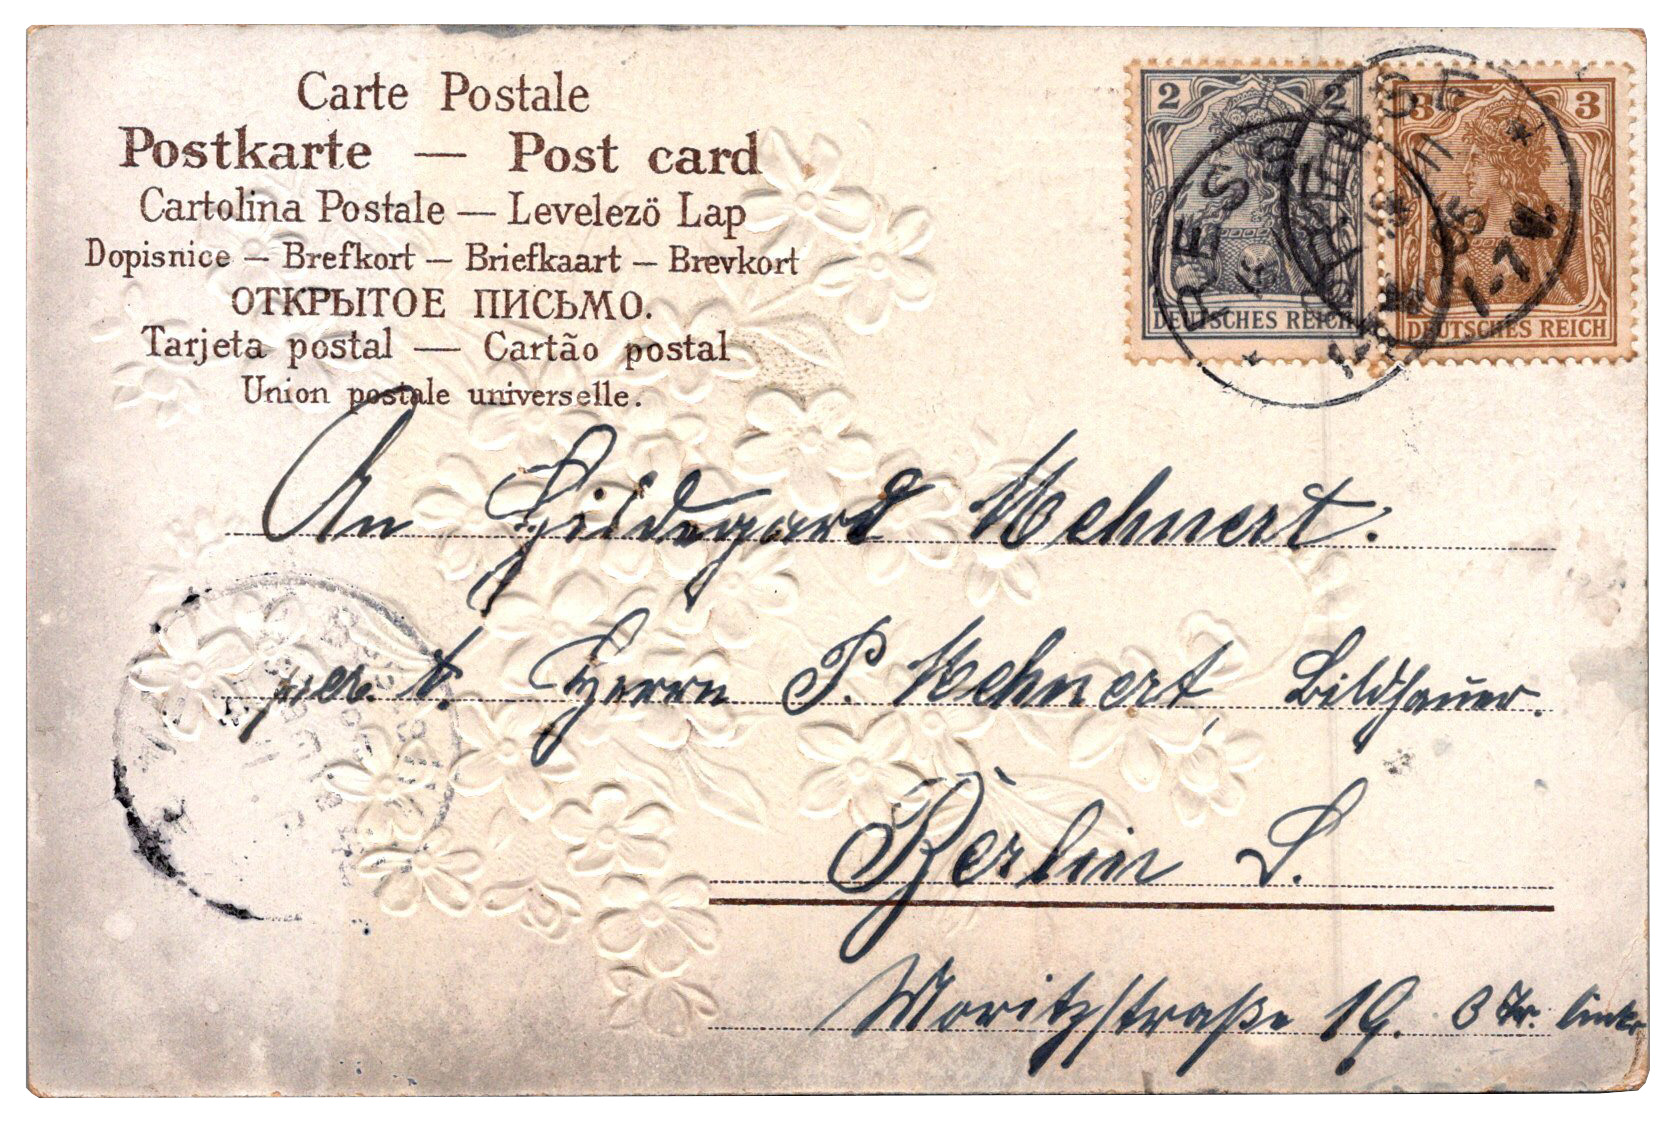 Carte Postale
Postkarte — Post card
Cartolina Postale — Levelezö Lap
Dopisnice — Brefkort — Briefkaart — Brevkort
ОТКРЫТОЕ ПИСЬМО.
Tarjeta postal — Cartão postal
Union postale universelle.
2 2
DEUTSCHES REICH
3 3
DEUTSCHES REICH
11
05
1-7 N.
An Hildegard Mehnert.
per. t. Herrn P. Mehnert, Bildhauer.
Berlin S.
Moritzstraße 19. 3 Tr. links